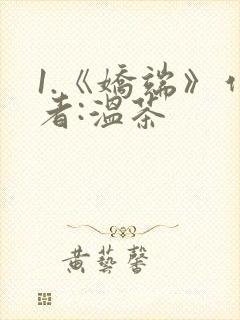 1.《嬌端》
者:溫茶
黄藝馨